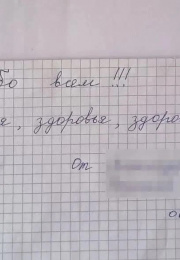 бо всем !!!
я, здоровья, здоро
От